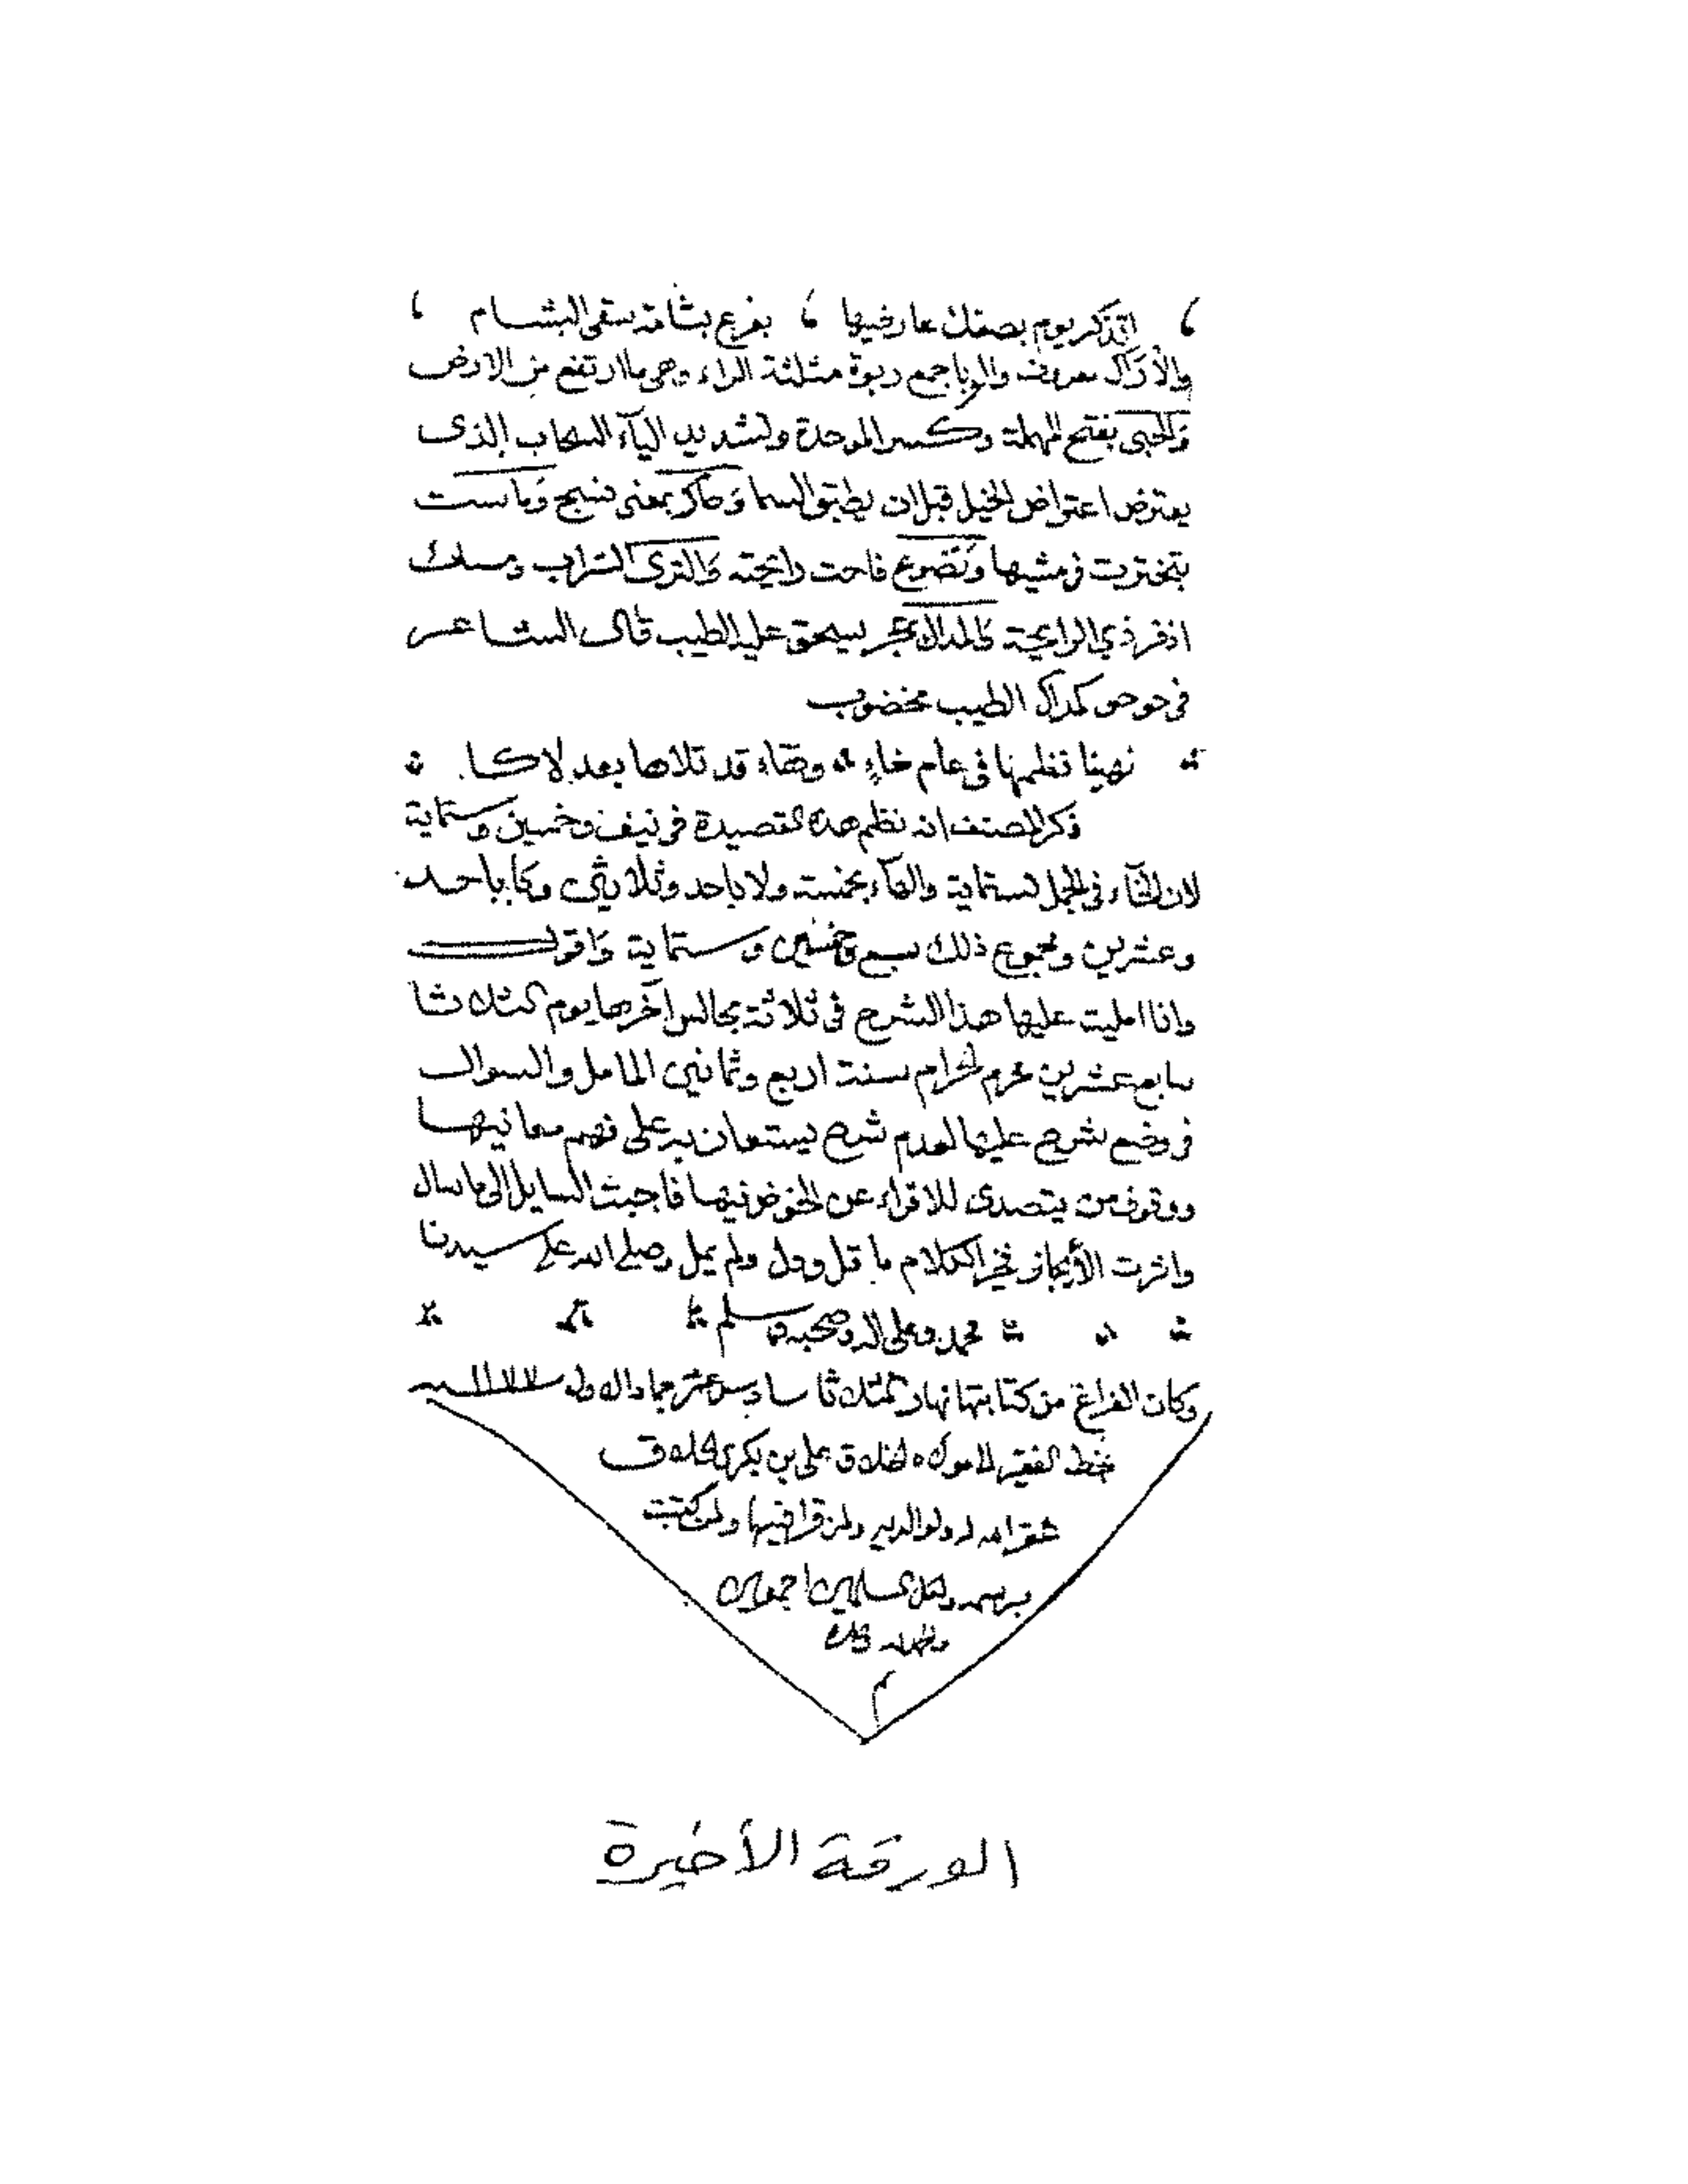 اتذكر يوم بصقل عارضيها بفرع بشامة سقى البشام
والأراك معروف والربا جمع ربوة مثلثة الراء وهي ما ارتفع من الارض
والحبي بفتح المهملة وكسر الموحدة وتشديد الياء السحاب الذى
يعترض اعتراض الخيل قبل ان يطبق السما وحاك بمعنى نسج وماست
تبخترت في مشيها وتضوع فاحت رائحته والثرى التراب ومسك
اذفر ذي الرايحة والمداك حجر يسحق عليه الطيب قال الشاعر
في جوجو كمداك الطيب مخضوب
نهينا نظمها في عام خاء وفاء قد تلاها بعد لا كا
ذكر المصنف انه نظم هذه القصيدة في نيف وخمسين وستماية
لان الخاء في الجمل ستماية والهاء بخمسة ولا باحد وثلاثين وكا باحد
وعشرين ومجموع ذلك سبع وخمسين وستماية واقول
وانا امليت عليها هذا الشرح في ثلاثة مجالس آخرها يوم الثلاثا
سابع عشرين محرم الحرام سنة اربع وثمانين والسوال
في وضع شرح عليها لعدم شرح يستعان به على فهم معانيها
ووقوف من يتصدى للاقراء عن الخوض فيها فاجبت السايل الى ما سال
واثرت الأيجاز فخير الكلام ما قل ودل ولم يمل وصلى الله على سيدنا
محمد وعلى اله وصحبه وسلم
وكان الفراغ من كتابتها نهار الثلاثا سادس عشر جماد الاول
بخط الفقير الخلاق علي بن بكري
غفر الله له ولوالديه ولمن قرا فيها ولمن كتبت
برسمه ولكل المسلمين اجمعين
والحمد لله
م
الورقة الأخيرة